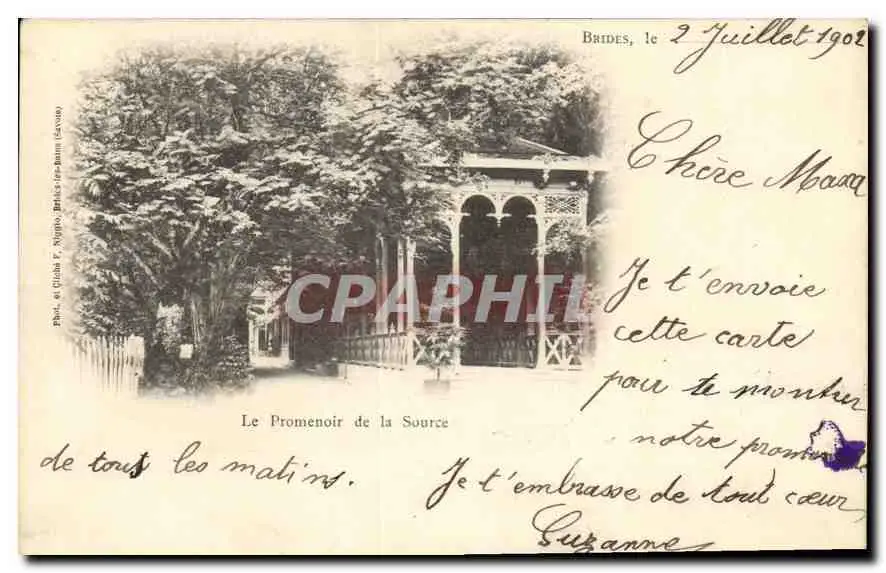 BRIDES, le 2 Juillet 1902
Chère Maxa
Je t'envoie
cette carte
pour te montrer
notre promenade
de tous les matins.
Je t'embrasse de tout cœur
Suzanne
Le Promenoir de la Source
Phot. et Cliché F. Niggio, Brides-les-Bains (Savoie)
CPAPHIL.com